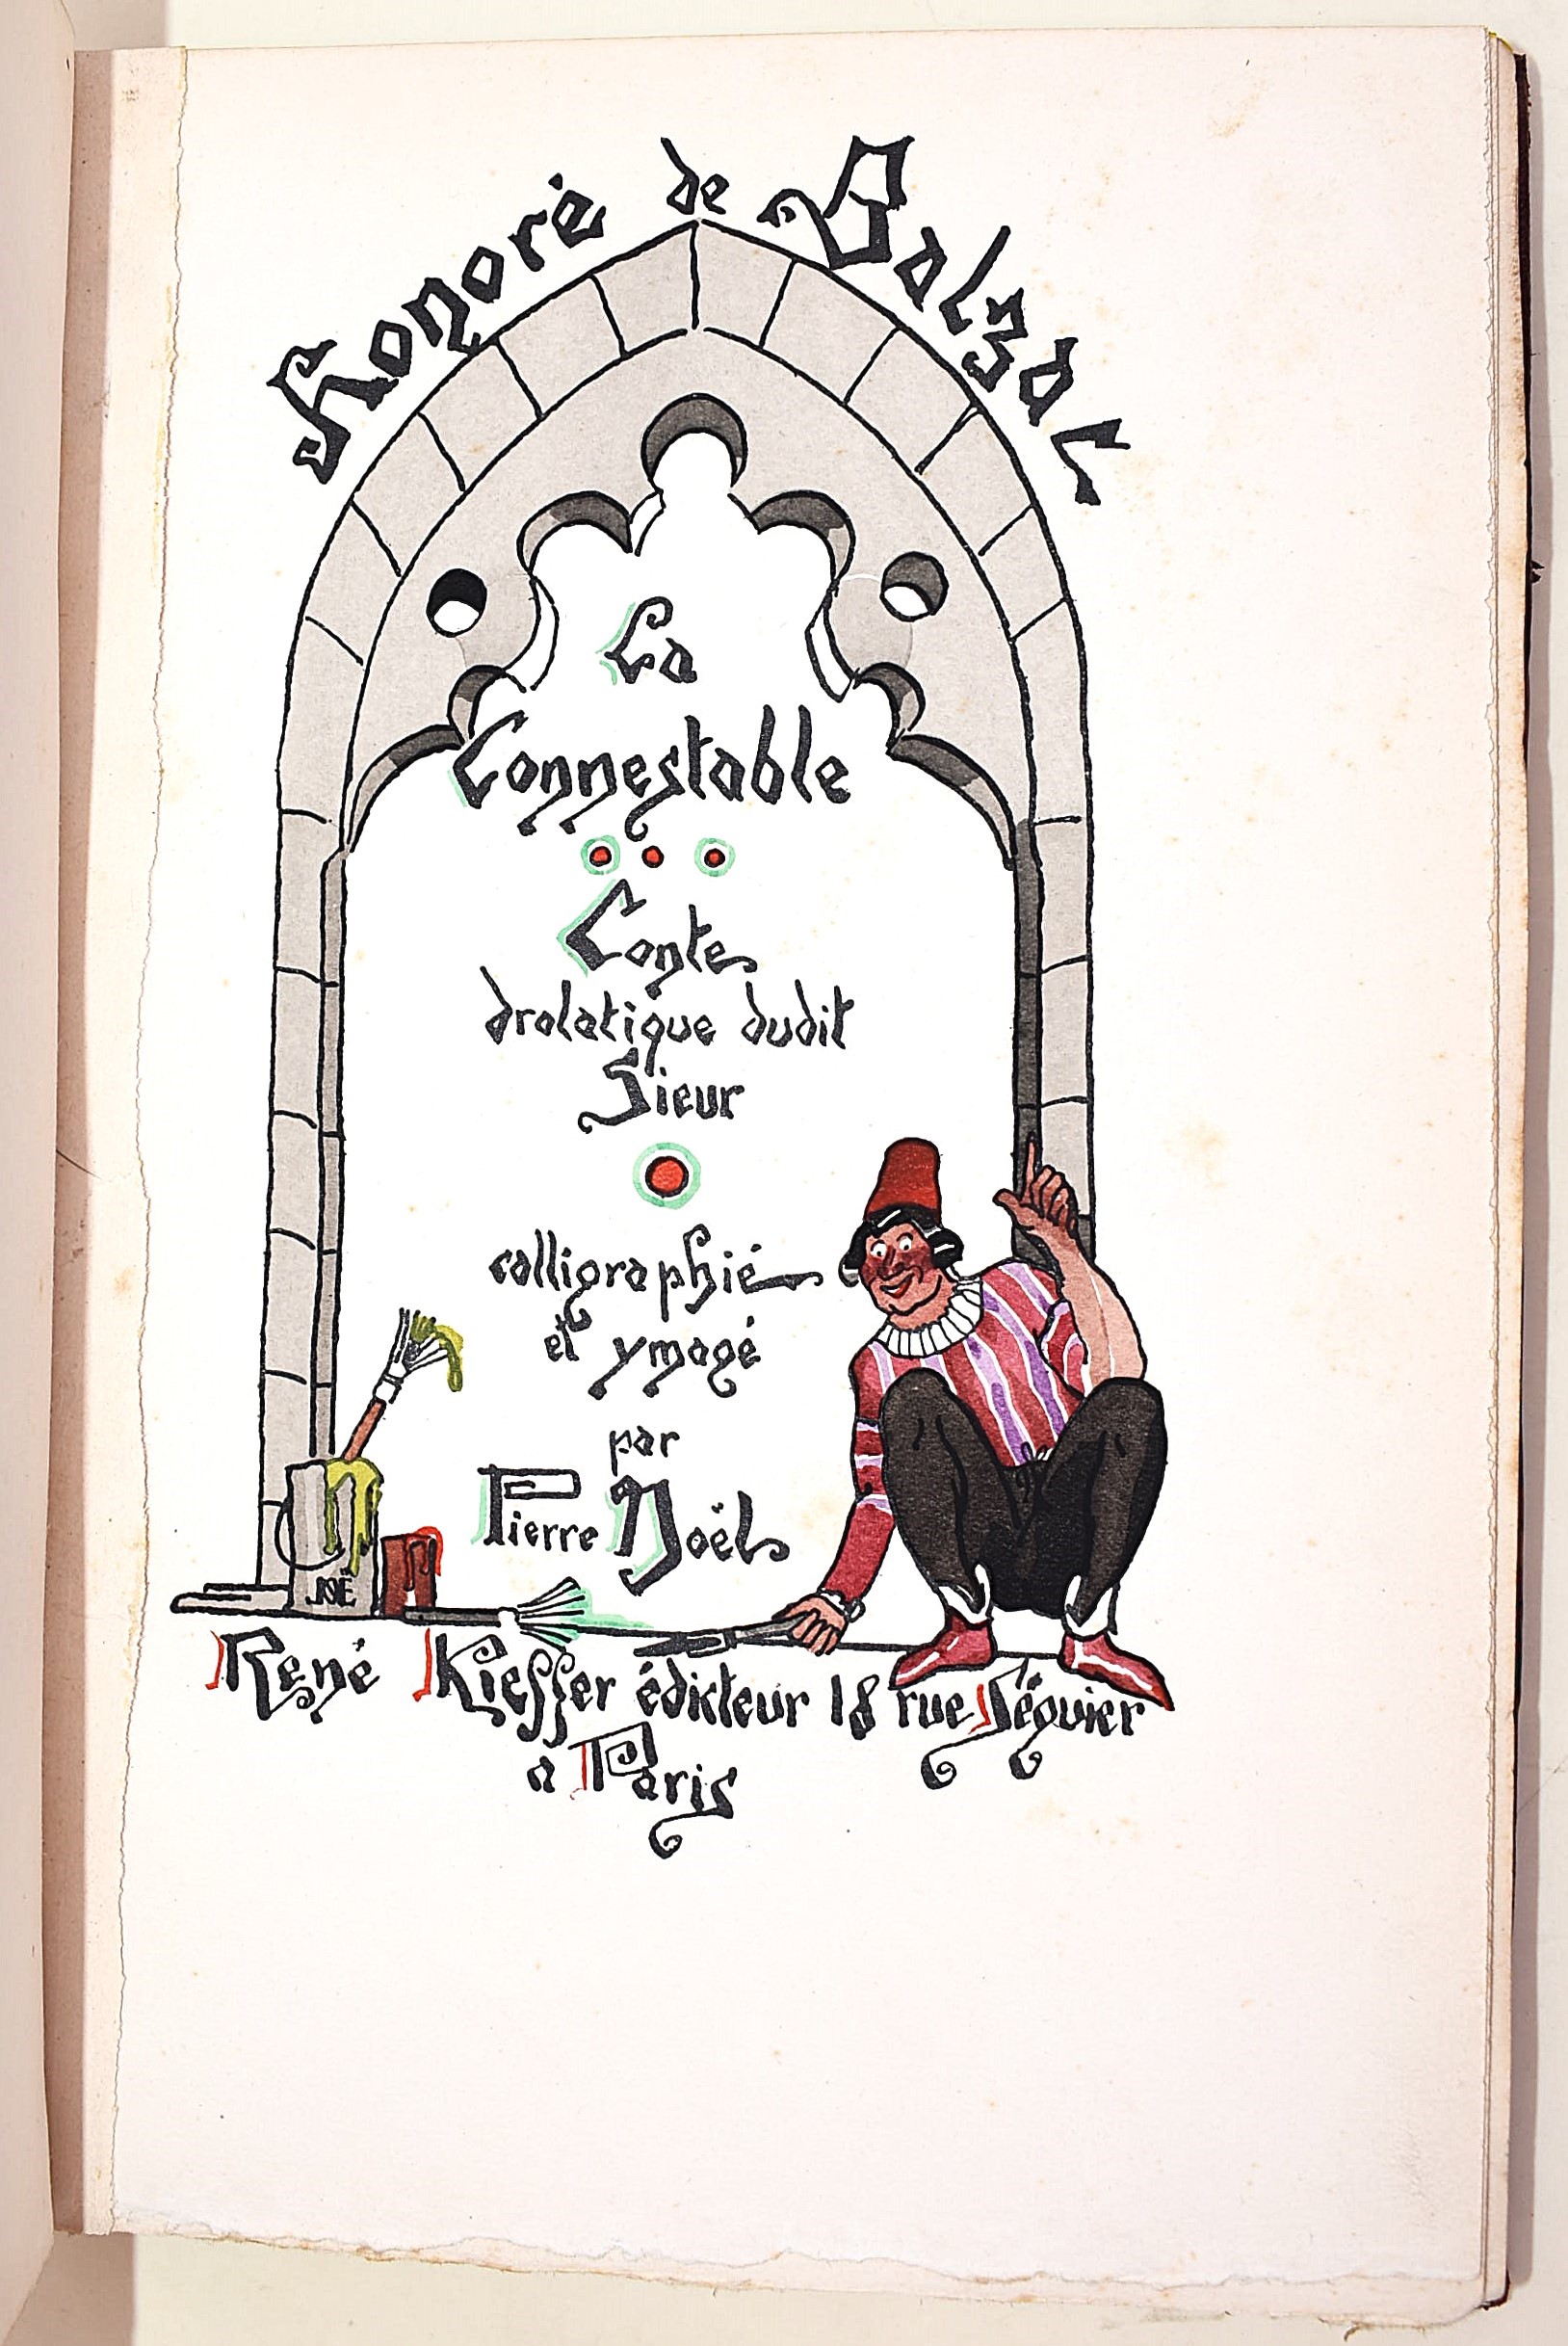 Honoré de Balzac
La
Connestable
Conte
drolatique dudit
Sieur
calligraphié
et ymagé
par
Pierre Noël
René Kieffer édicteur 18 rue Séguier
a Paris